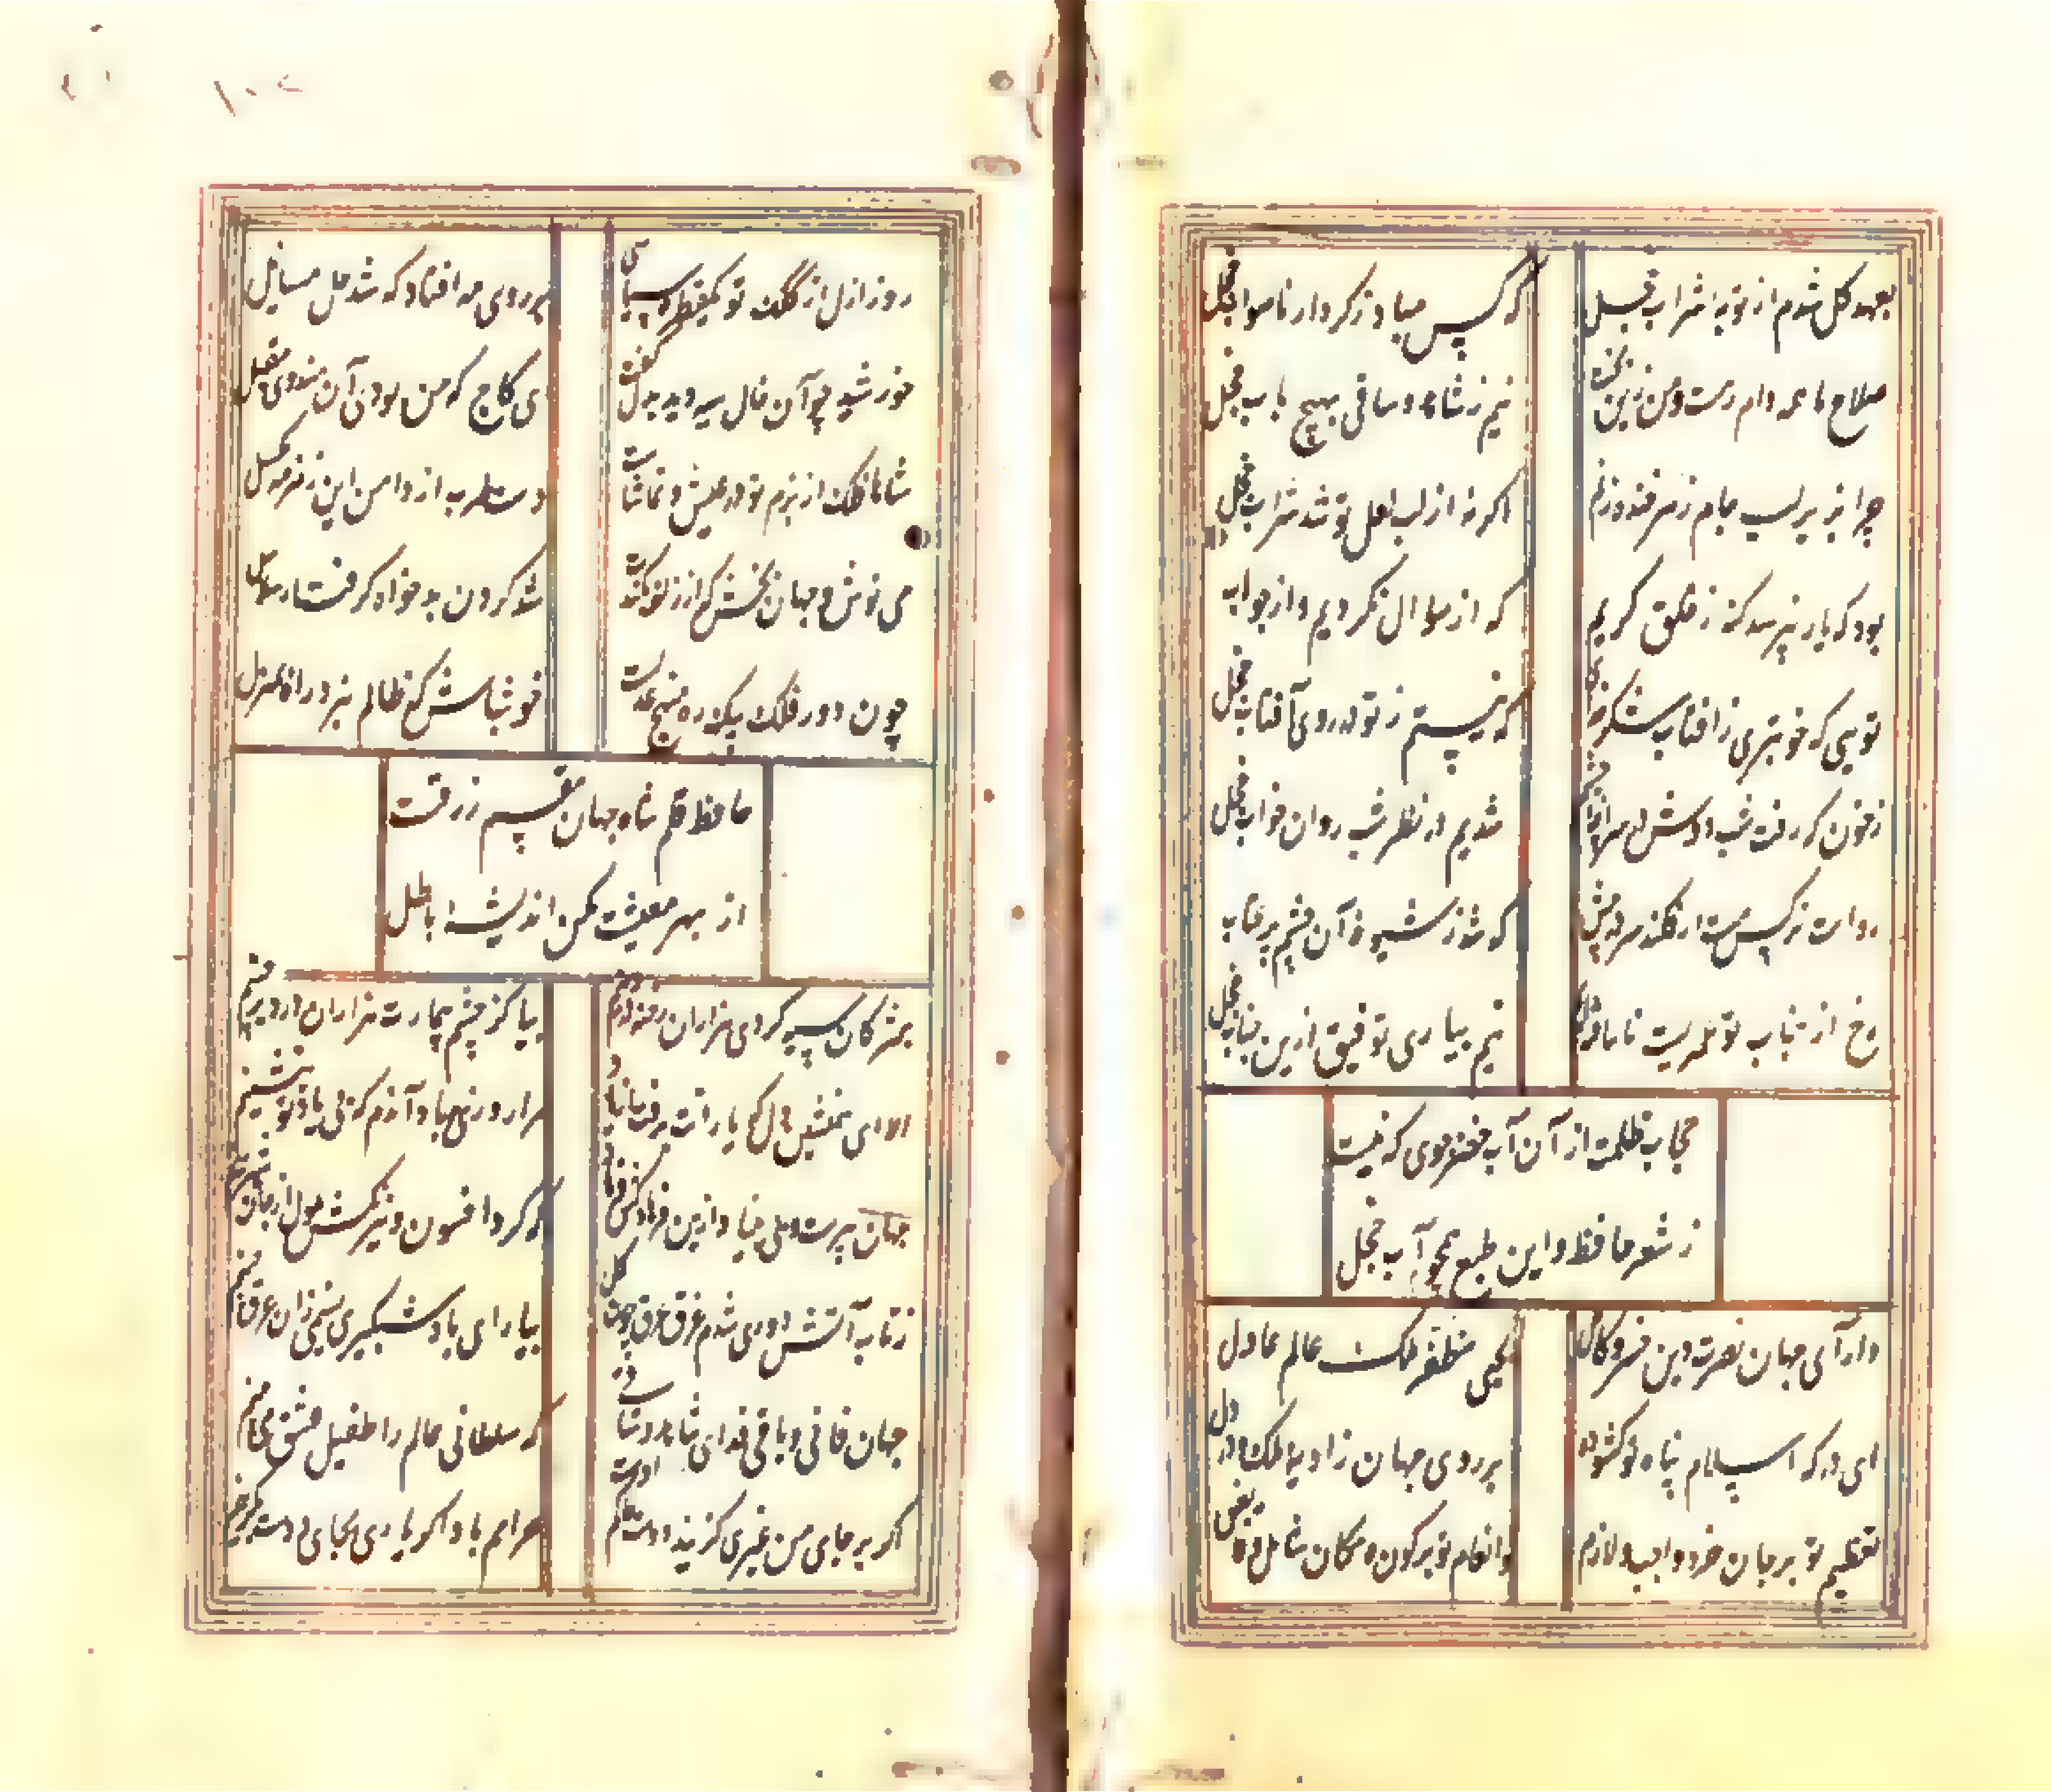 بعهد گل شدم از توبه شراب خجل
که کس مباد ز کردار ناصواب خجل
صلاح ما همه دام رهست و من زین بحث
نیم ز شاهد و ساقی بهیچ باب خجل
چرا به زیر لب جام زهر خنده زند
اگر نه از لب لعل تو شد شراب خجل
بود که یار نپرسد گنه ز خلق کریم
که از سوال نکردیم و از جواب
تویی که خوبتری ز افتاب شکر خدا
که نیستم ز تو در روی آفتاب خجل
ز خون که رفت شب دوش از سراچه چشم
شدیم در نظر شب روان خواب خجل
رواست نرگس مست ار فکند سر در پیش
که شد ز شیوه آن چشم پر عتاب
رخ از جناب تو عمریست تا نتافته‌ام
نیم بیاری توفیق ازین جناب خجل
حجاب ظلمت از آن آب خضر جوی که نیست
ز شعر حافظ و این طبع همچو آب خجل
دارآی جهان نصرت دین خسرو کامل
یحیی مظفر ملک عالم عادل
ای درکه اسلام پناه تو کشوده
بر روی جهان زاد بیا ملک و در دل
تعظیم تو بر جان خرد واجب و لازم
وانعام تو بر کون و مکان شامل و فایض
روز ازل از کلک تو یکقطره سیاهی
بر روی مه افتاد که شد حل مسایل
خورشید چو آن خال سیه دید بدل گفت
ای کاج که من بودی آن هندوی مقبل
شاها فلک از بزم تو در عیش و تماشاست
دست طرب از دامن این زمزمه مکسل
می نوش و جهان بخش که از زلف کمندت
شد کردن بدخواه کرفتار سلاسل
چون دور فلک یکسره بر منهج عدلست
خوش باش که ظالم نبرد راه بمنزل
حافظ قلم شاه جهان مقسم رزقست
از بهر معیشت مکن اندیشه باطل
بمژکان سیه کردی هزاران رخنه در دینم
بیا کز چشم بیمارت هزاران درد برچینم
الا ای همنشین دل که یارانت برفت از یاد
مرا روزی مباد آندم که بی یاد تو بنشینم
جهان پیرست و بی بنیاد ازین فرهادکش فریاد
که کرد افسون و نیرنکش ملول از جان شیرینم
ز تاب آتش دوری شدم غرق عرق چون گل
بیار ای باد شبکیری نسیمی زان عرق چینم
جهان فانی و باقی فدای شاهد و ساقی
که سلطانی عالم را طفیل عشق می بینم
اکر بر جای من غیری کزیند دوست حاکم اوست
حرامم باد اکر یاری بجای دوست بکزینم